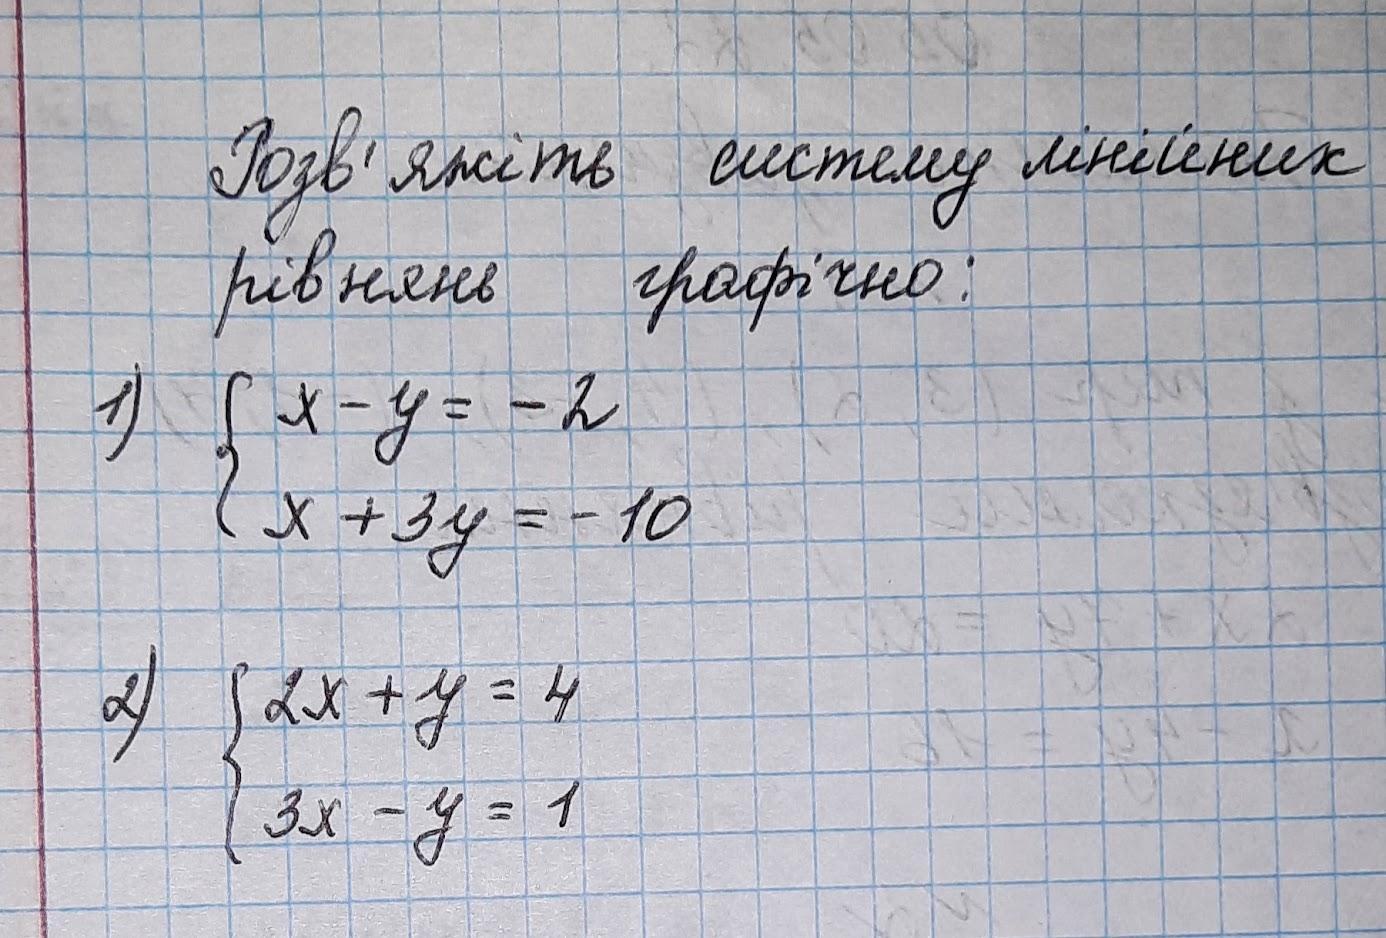 Розв'яжіть систему лінійних
рівнянь графічно:
1) { x - y = - 2
x + 3y = - 10
2) { 2x + y = 4
3x - y = 1